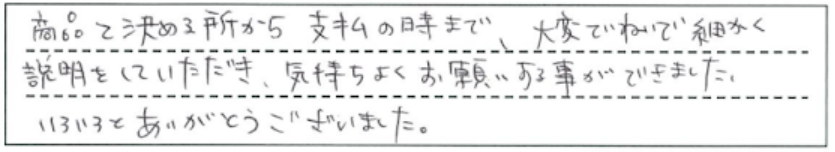 商品を決める所から支払の時まで、大変ていねいで細かく
説明をしていただき、気持ちよくお願いする事ができました。
いろいろとありがとうございました。